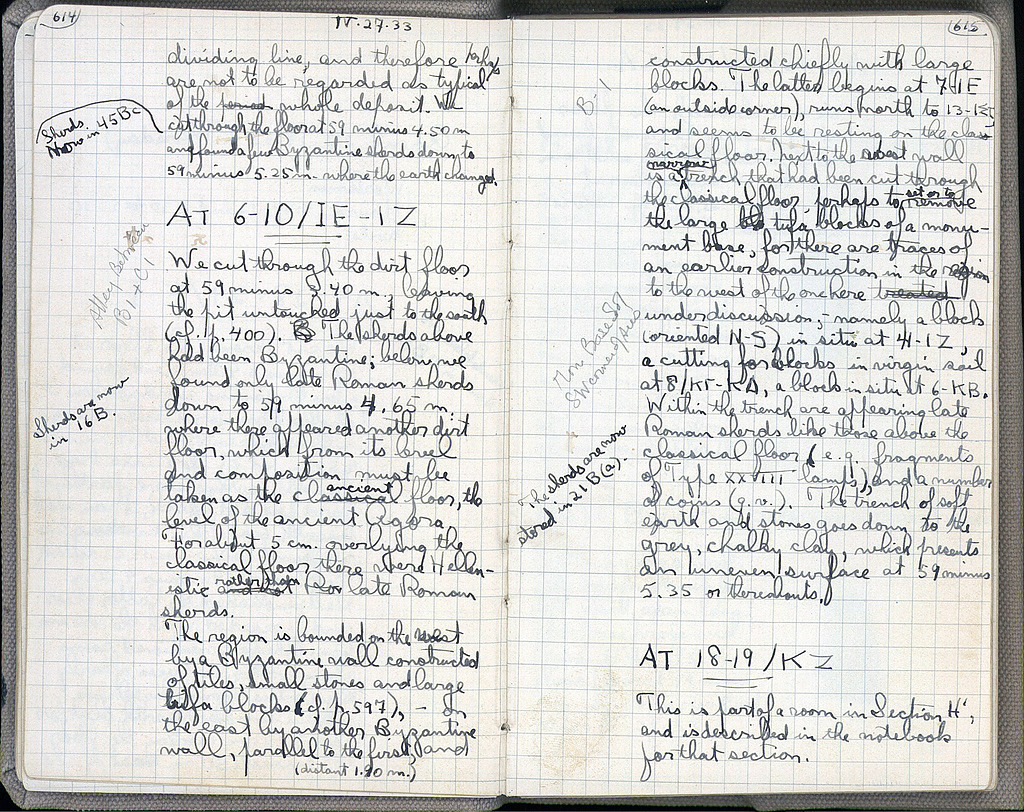 614
IV-27-33
dividing line, and therefore perhaps
are not to be regarded as typical
of the period whole deposit. We
cut through the floor at 59 minus 4.50 m
and found a few Byzantine sherds down to
59 minus 5.25 m. where the earth changed.
Sherds
now in 45 BC
AT 6-10/IE-IZ
Alley Between
B1 + C1
We cut through the dirt floor
at 59 minus .40 m., leaving
the pit untouched just to the south
(cf. p. 400). The sherds above
had been Byzantine; below, we
found only late Roman sherds
down to 59 minus 4.65 m.
where there appeared another dirt
floor, which from its level
and composition must be
taken as the classical ancient floor, the
level of the ancient Agora
For about 5 cm. overlying the
classical floor there were Hellen-
istic and not rather than for late Roman
sherds.
Sherds are now
in 16 B.
The region is bounded on the west
by a Byzantine wall constructed
of tiles, small stones and large
tufa blocks (cf. p. 597), - on
the east by another Byzantine
wall, parallel to the first, and
(distant 1.90 m.)
615
B-1
constructed chiefly with large
blocks. The latter begins at 7-IE
(an outside corner), runs north to 13-IET
and seems to be resting on the clas
sical floor. Next to the west wall
is a narrow trench that had been cut through
the classical floor, perhaps to set or to remove
the large tufa blocks of a monu-
ment base, for there are traces of
an earlier construction in the region
to the west of the one here treated
under discussion, - namely a block
(oriented N-S) in situ at 4-IZ,
a cutting for blocks in virgin soil
at 8/KΓ-KΔ, a block in situ at 6-KB.
Within the trench are appearing late
Roman sherds like those above the
classical floor (e.g. fragments
of Type XXVIII lamps), and a number
of coins (q.v.). The trench of soft
earth and stones goes down to the
grey, chalky clay, which presents
an uneven surface at 59 minus
5.35 or thereabouts.
Mon Base
SW corner
The sherds are now
stored in 21 B (a).
AT 18-19/KZ
This is part of a room in Section H',
and is described in the notebook
for that section.